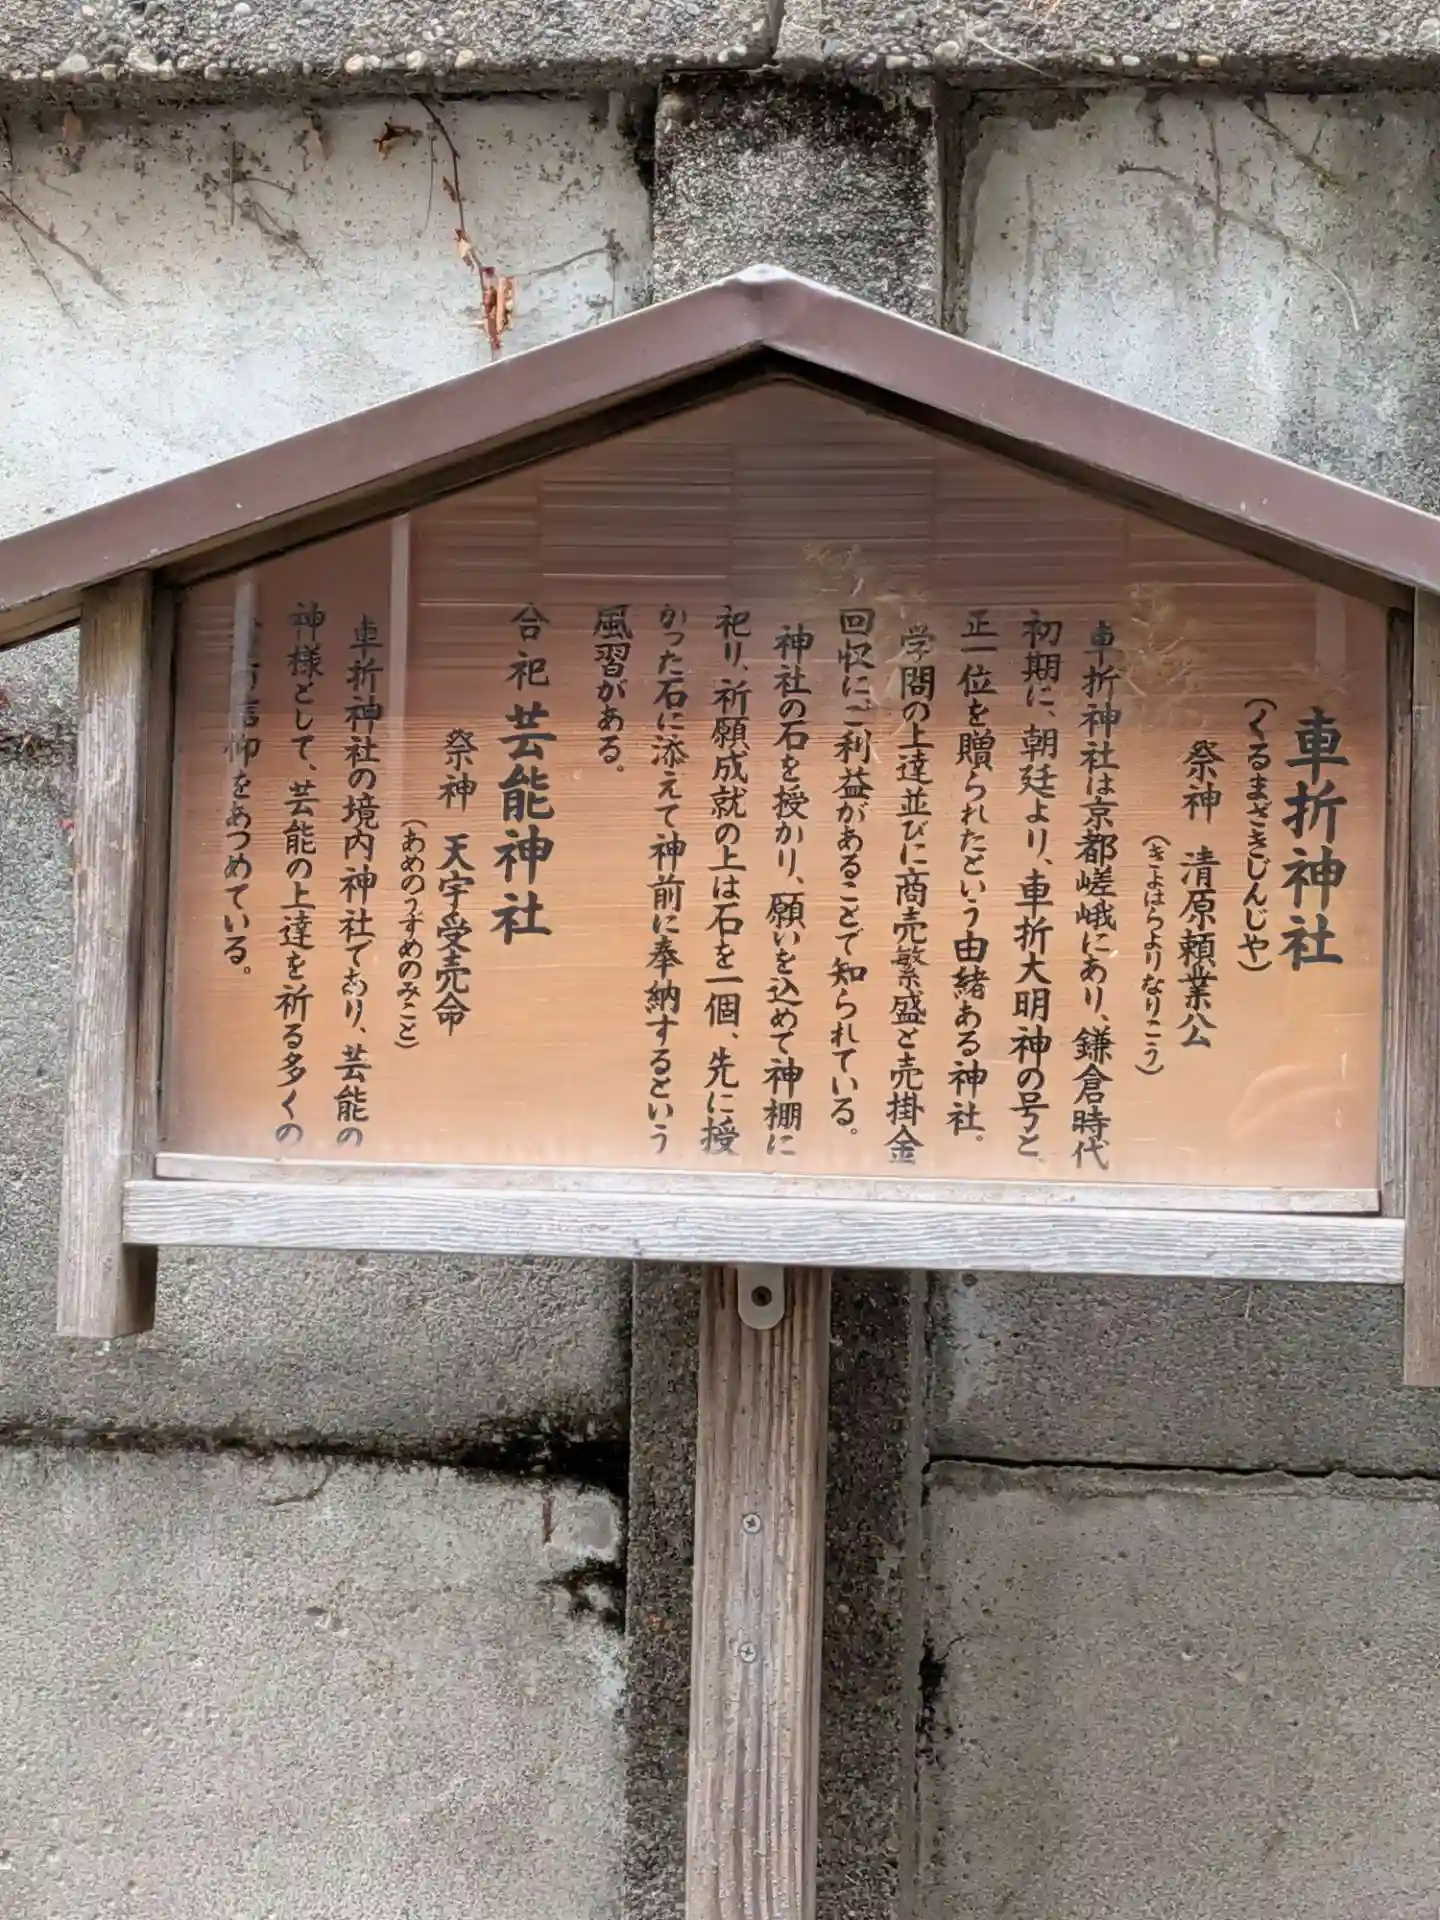 車折神社
(くるまざきじんじゃ)
祭神 清原頼業公
(きよはらよりなりこう)
車折神社は京都嵯峨にあり、鎌倉時代
初期に、朝廷より、車折大明神の号と、
正一位を贈られたという由緒ある神社。
学問の上達並びに商売繁盛と売掛金
回収にご利益があることで知られている。
神社の石を授かり、願いを込めて神棚に
祀り、祈願成就の上は石を一個、先に授
かった石に添えて神前に奉納するという
風習がある。
合祀 芸能神社
祭神 天宇受売命
(あめのうずめのみこと)
車折神社の境内神社であり、芸能の
神様として、芸能の上達を祈る多くの
信仰をあつめている。